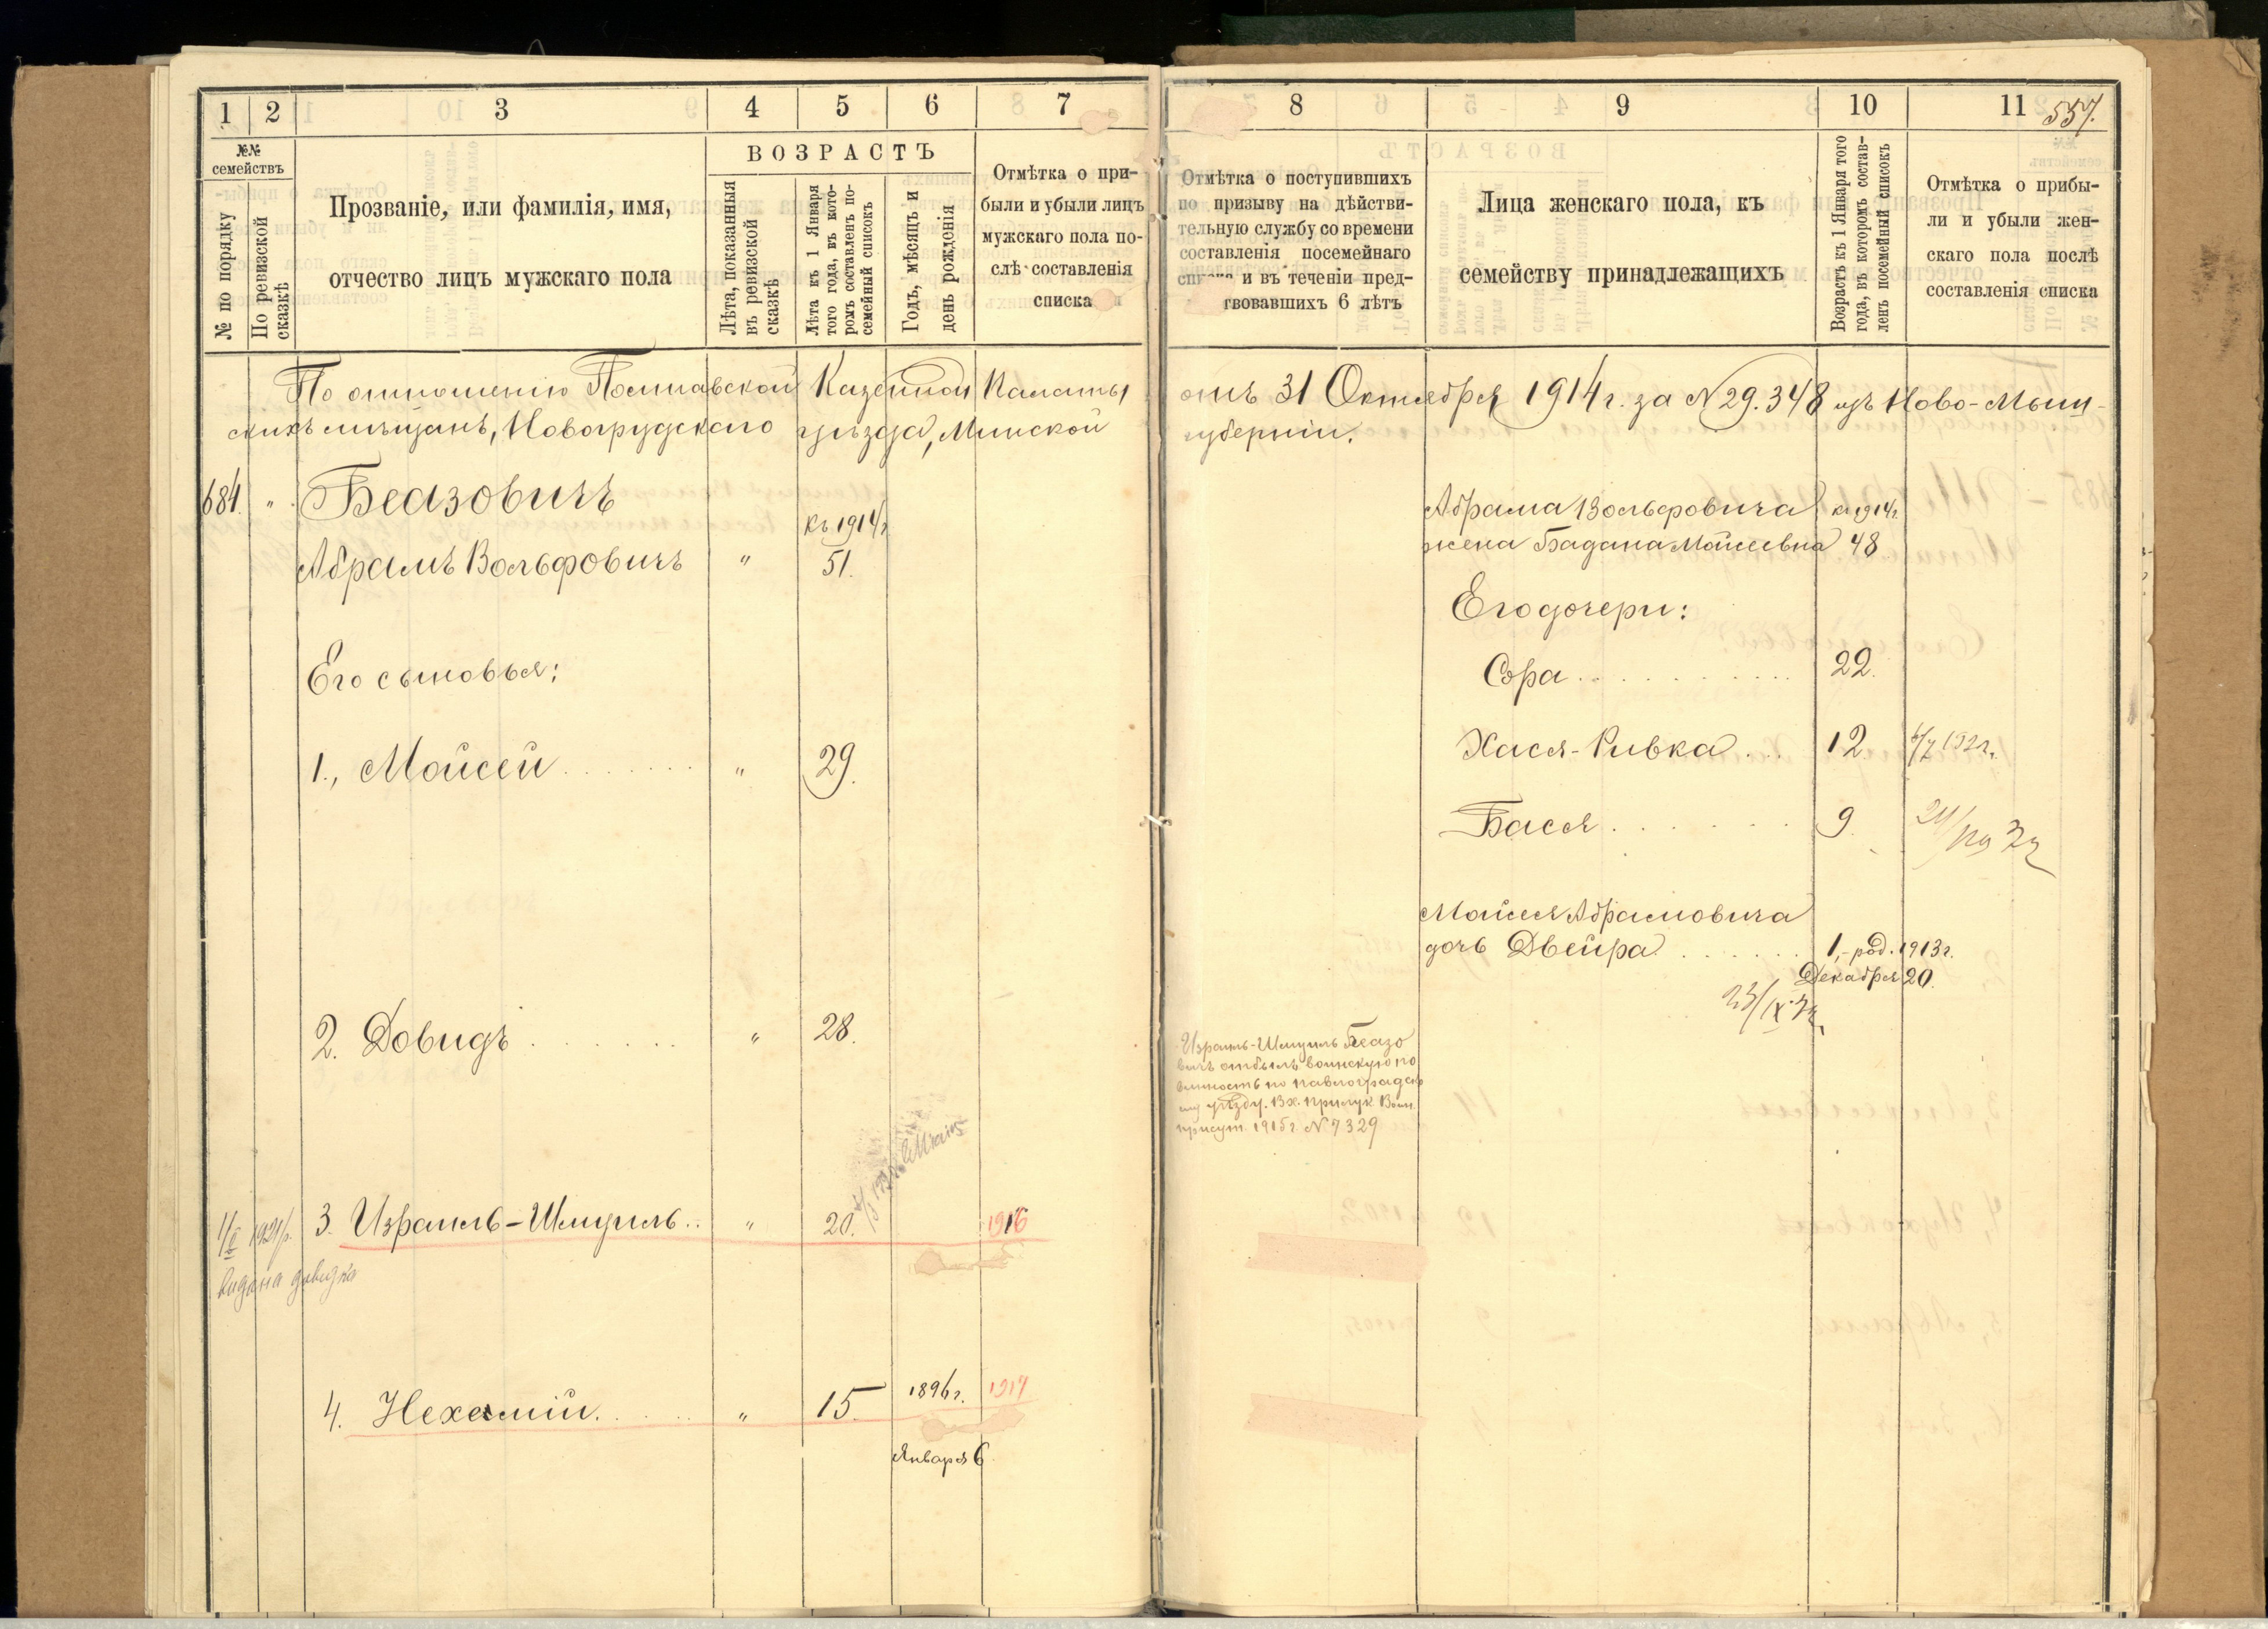 1 2 3 4 5 6 7
№№ семействъ
№ по порядку
По ревизской сказкѣ
Прозваніе, или фамилія, имя,
отчество лицъ мужскаго пола
ВОЗРАСТЪ
Лѣта, показанныя
въ ревизской
сказкѣ
Лѣта къ 1 Января
того года, въ кото-
ромъ составленъ по-
семейный списокъ
Годъ, мѣсяцъ и
день рожденія
Отмѣтка о при-
были и убыли лицъ
мужскаго пола по-
слѣ составленія
списка
8 9 10 11
557.
Отмѣтка о поступившихъ
по призыву на дѣйстви-
тельную службу со времени
составленія посемейнаго
и въ теченіи пред-
твовавшихъ 6 лѣтъ
Лица женскаго пола, къ
семейству принадлежащихъ
Возрастъ къ 1 Января того
года, въ которомъ состав-
ленъ посемейный списокъ
Отмѣтка о прибы-
ли и убыли жен-
скаго пола послѣ
составленія списка
По отношенію Полтавской Казенной Палаты отъ 31 Октября 1914 г. за № 29.348 изъ Ново-Мыш-
скихъ мѣщанъ, Новогрудскаго уѣзда, Минской губерніи.
684. " Беазовичъ
къ 1914 г
Абрамъ Вольфовичъ " 51.
Его сыновья:
1., Мойсей " 29.
2. Довидъ " 28.
1921 р. 3. Израиль-Шмуиль " 20. 1916
видана довидка
4. Нехемiй " 15. 1896 г. 1917
Января 6
Израиль-Шмуиль Беазо
вичъ отбылъ воинскую по
винность по Павлоградско
му уѣзду. Вх. Прилук. Воин.
присут. 1915 г. № 7329
Абрама Вольфовича къ 1914 г.
жена Бадана Мойсеевна 48
Его дочери:
Сора 22.
Хася-Ривка 12.
Бася 9.
Мойсея Абрамовича
дочь Двейра 1,-род. 1913 г.
Декабря 20.